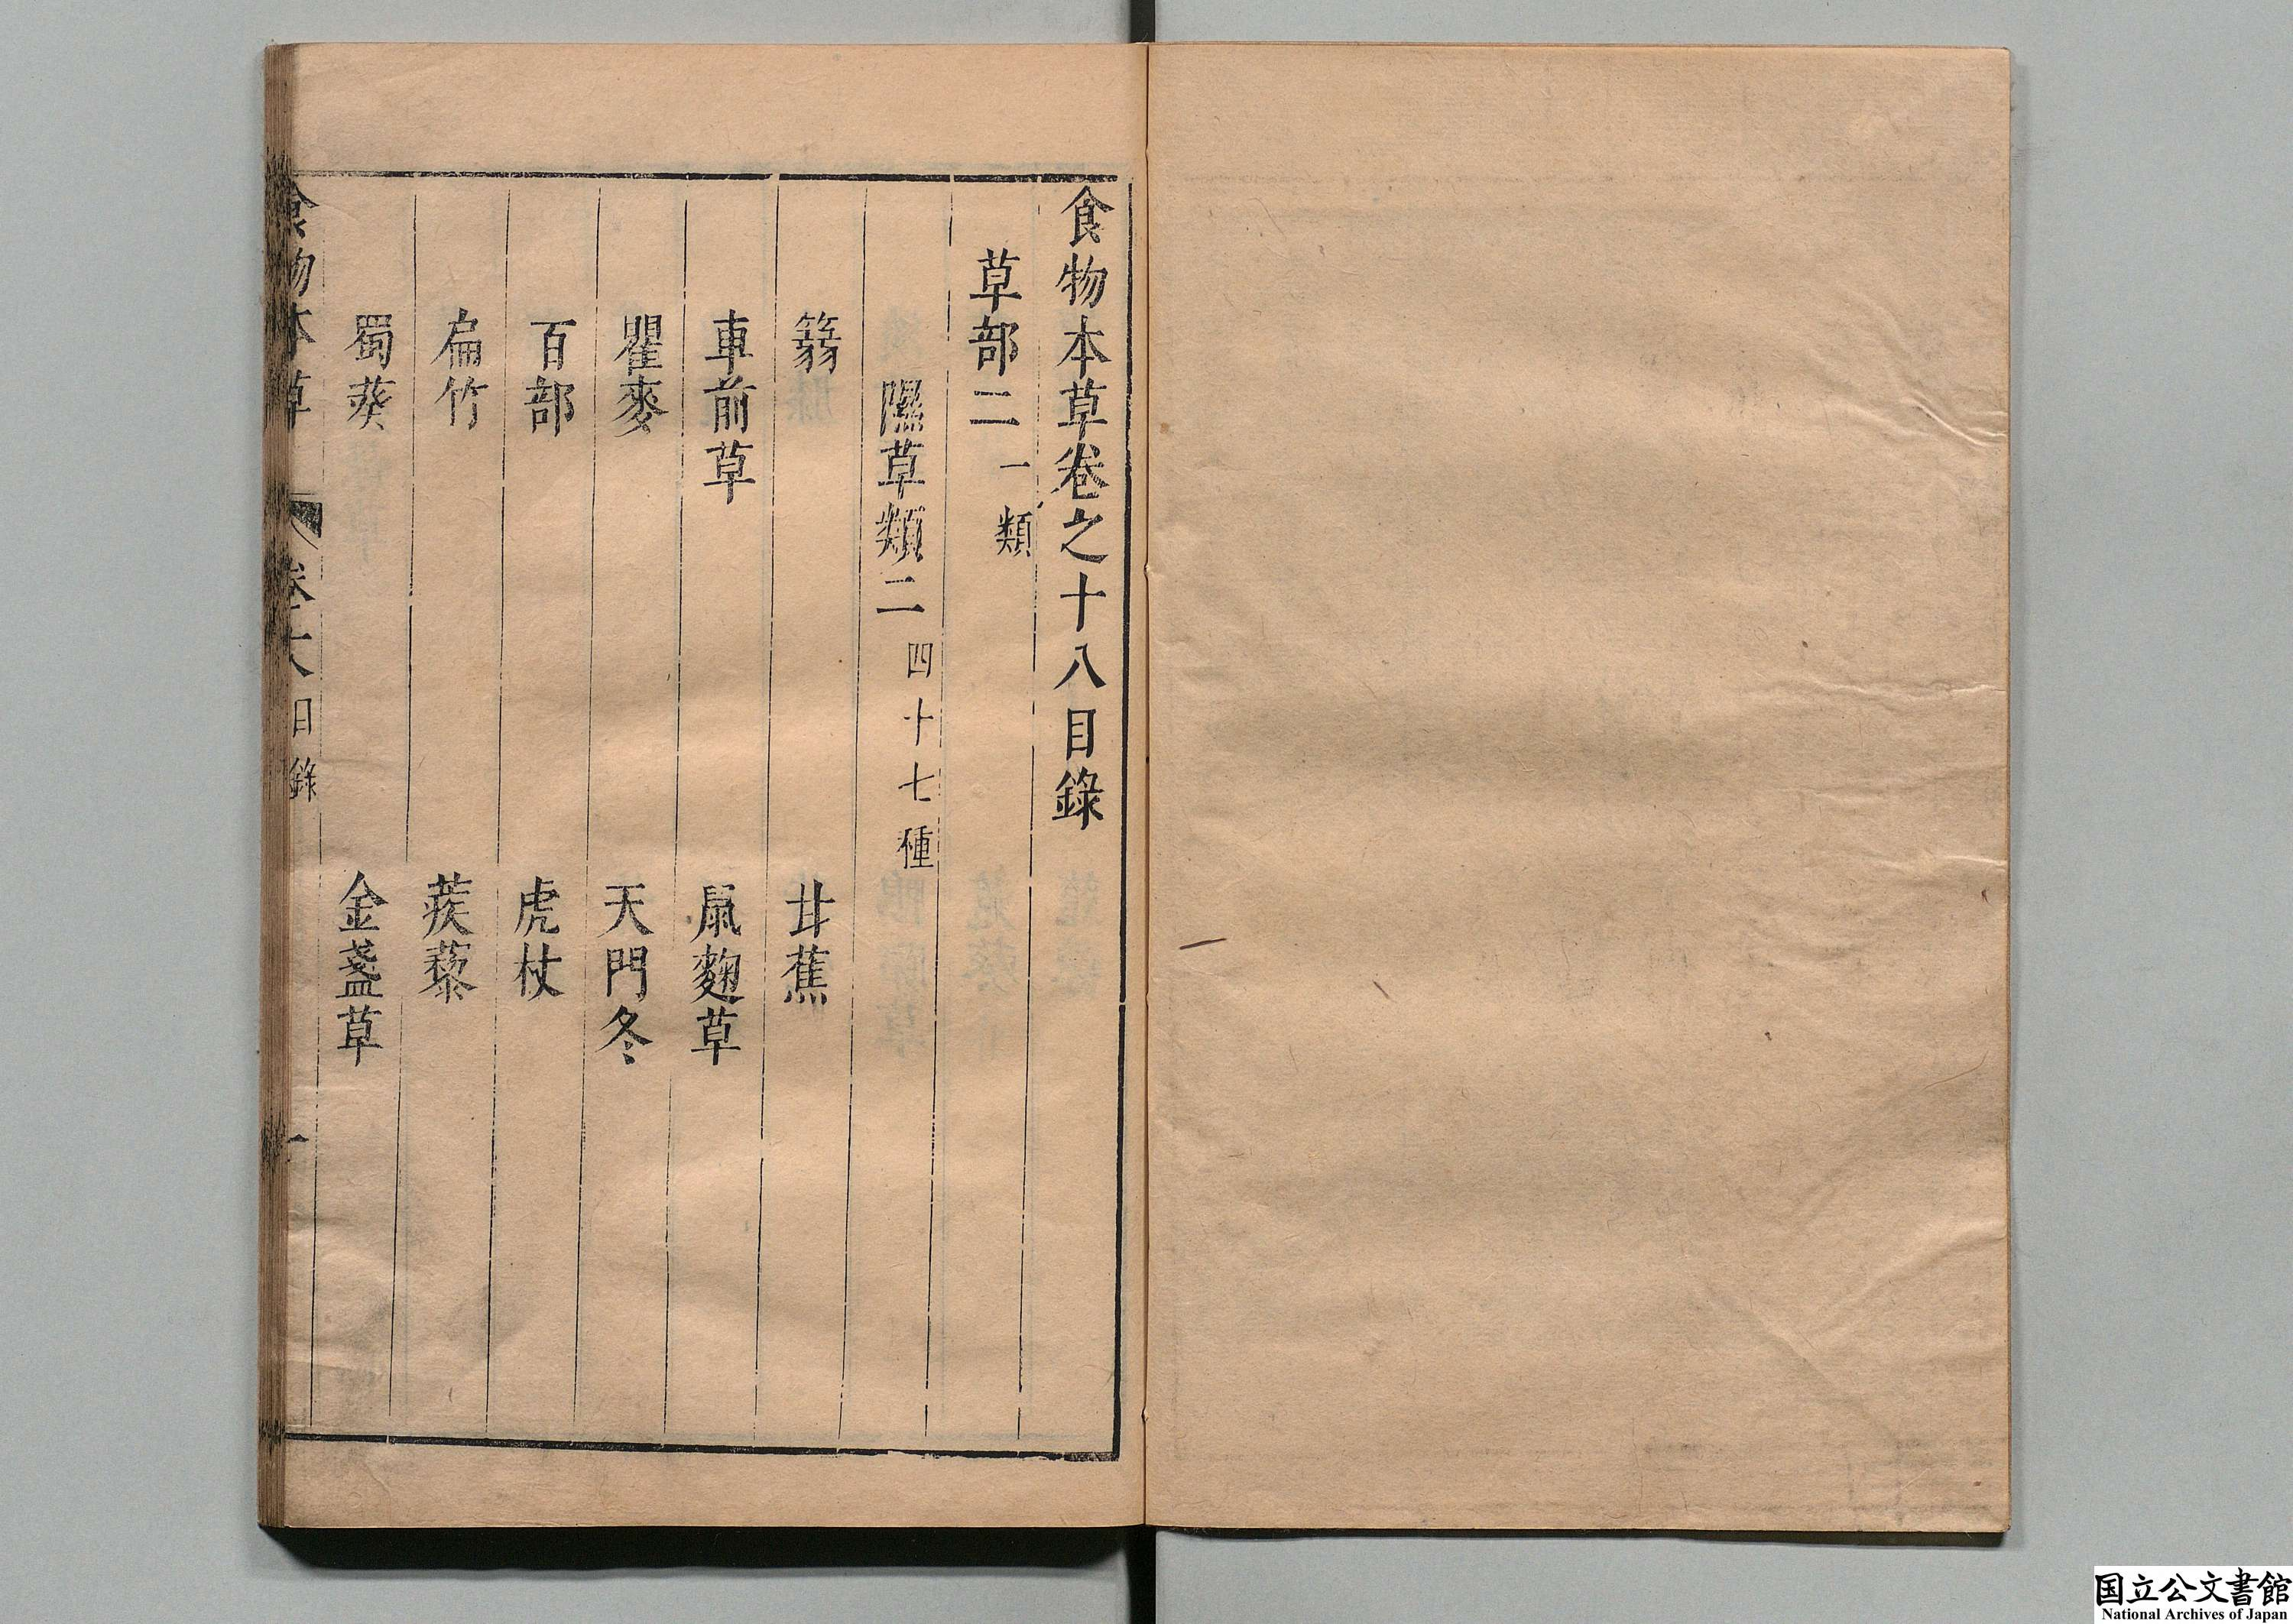 食物本草卷之十八目錄
草部二 一類
隰草類二 四十七種
篛 甘蕉
車前草 鼠麴草
瞿麥 天門冬
百部 虎杖
扁竹 蒺藜
蜀葵 金盞草
食物本草 卷十八目錄 一
国立公文書館
National Archives of Japan